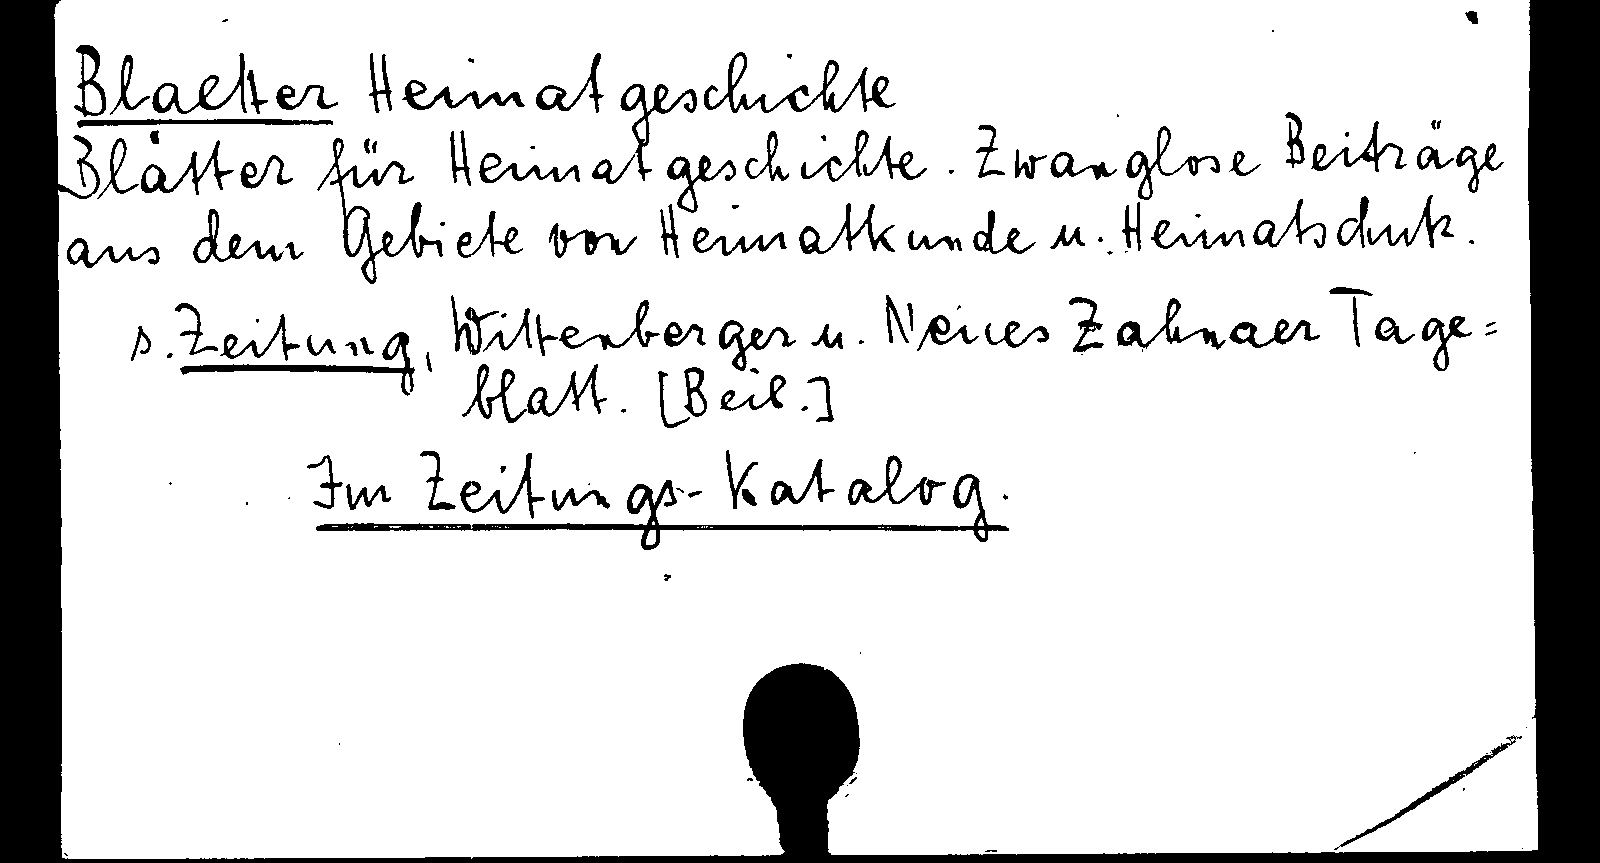 Blaetter Heimatgeschichte
Blätter für Heimatgeschichte. Zwanglose Beiträge
aus dem Gebiete von Heimatkunde u. Heimatschutz.
s. Zeitung, Wittenberger u. Neues Zahnaer Tage=
blatt. [Beil.]
Im Zeitungs-Katalog.